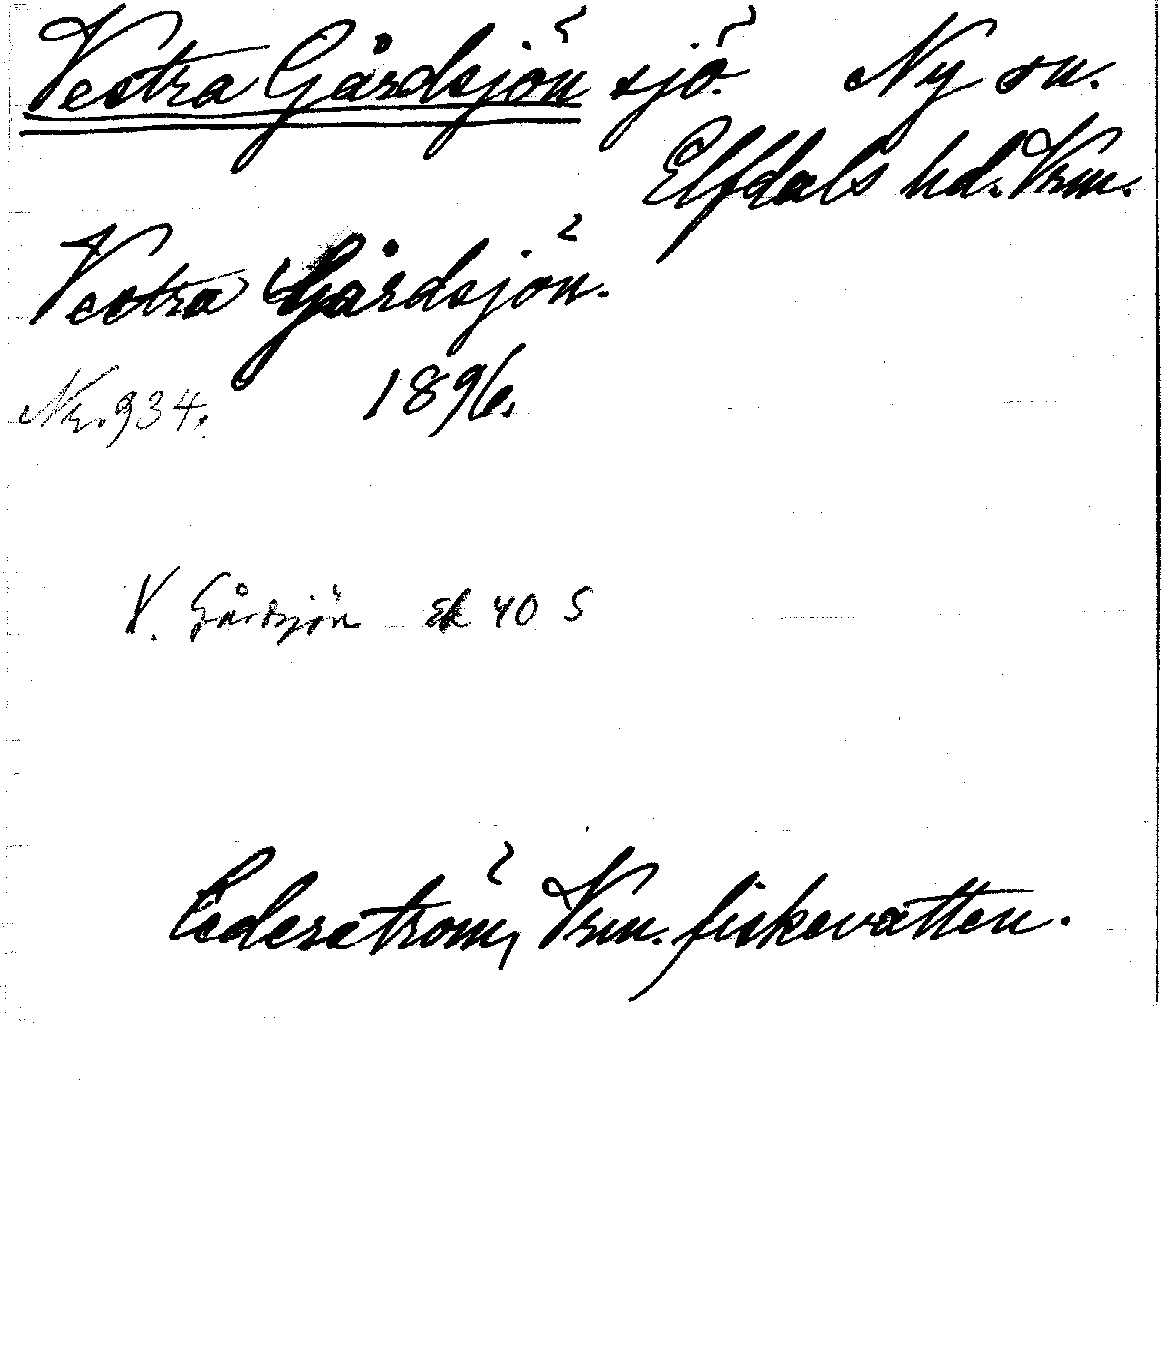 Vestra Gårdsjön sjö. Ny sn.
Elfdals hd. Vrm.
Vestra Gårdsjön.
Nr. 934. 1896.
V. Gårdsjön Ek 40 S
Cederström, Vrm. fiskevatten.